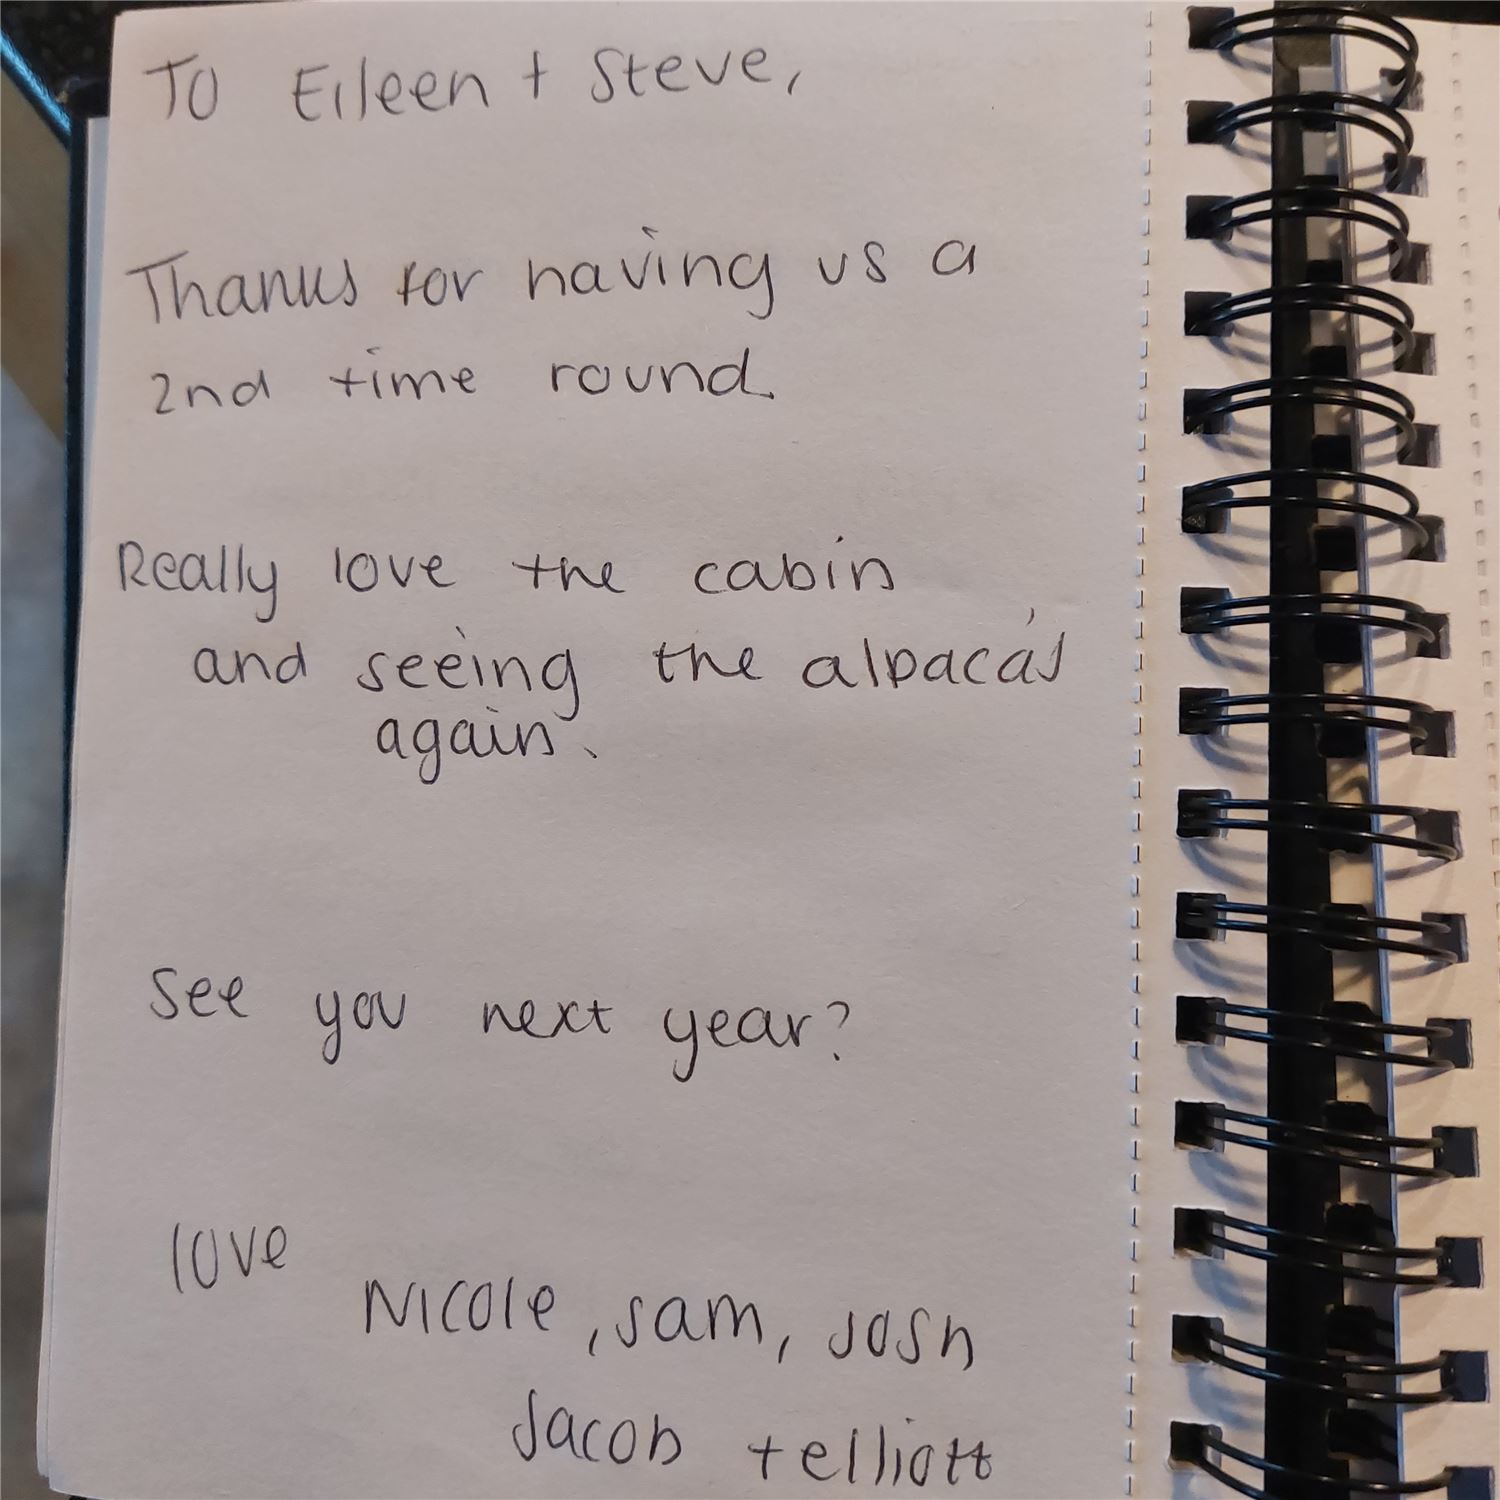 To Eileen + Steve,
Thanks for having us a
2nd time round.
Really love the cabin
and seeing the alpaca's
again.
See you next year?
love
Nicole, Sam, Josh
Jacob + elliott